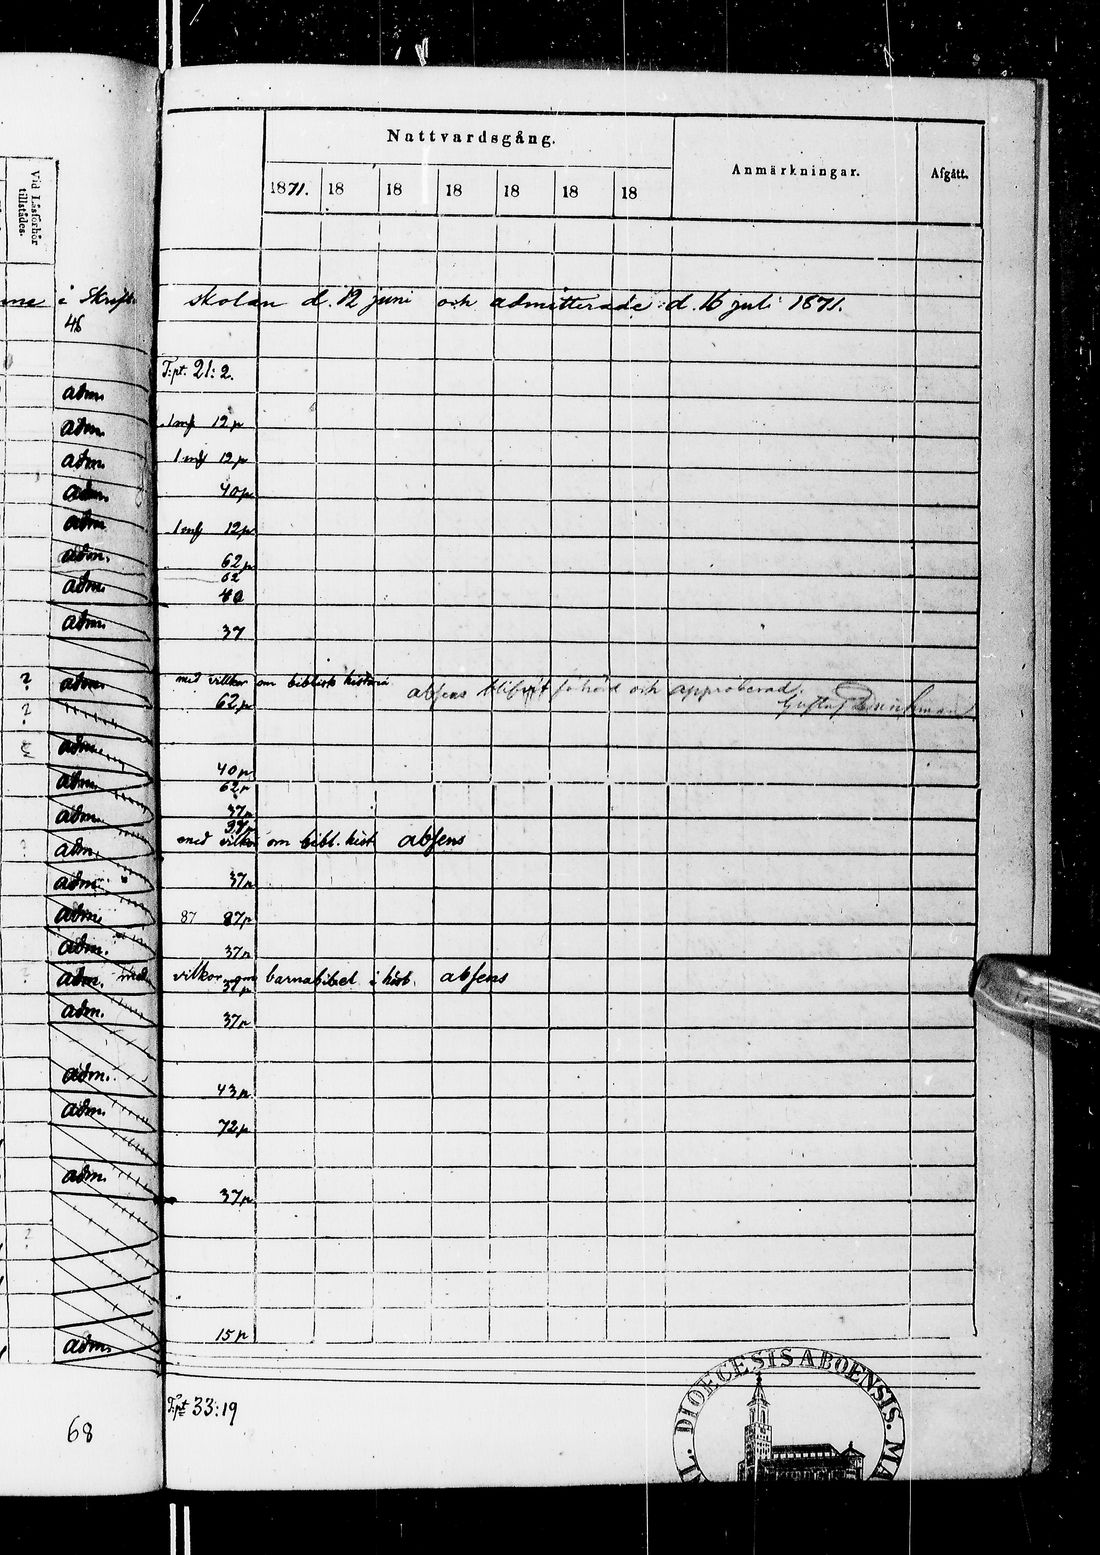 Nattvardsgång.
Anmärkningar.
Afgått.
1871. 18 18 18 18 18 18
Vid Läsförhör
tillstädes.
i Skrift-
skolan d. 12 juni och admitterade d. 16 juli 1871.
46
T:pt. 21:2.
adm.
adm. 1 mf 12 p
adm. 1 mf 12 p
adm. 40 p
adm. 1 mf 12 p
adm. 62 p
62
adm. 40
adm. 37
? adm. med villkor om biblisk historia
62 p absens blifvit förhörd och approberad.
Gustaf
?
adm.
40 p
adm. 62 p
adm. 37 p
37 p
? adm. med vilkor om bibl. hist absens
adm. 37 p
adm. 87 87 p
adm. 37 p
? adm. med vilkor om barnabibel i hist. absens
37 p
adm. 37 p
adm. 43 p
adm. 72 p
adm. 37 p
?
adm. 15 p
T:pt 33:19
68
DIOECESIS ABOENSIS. MA